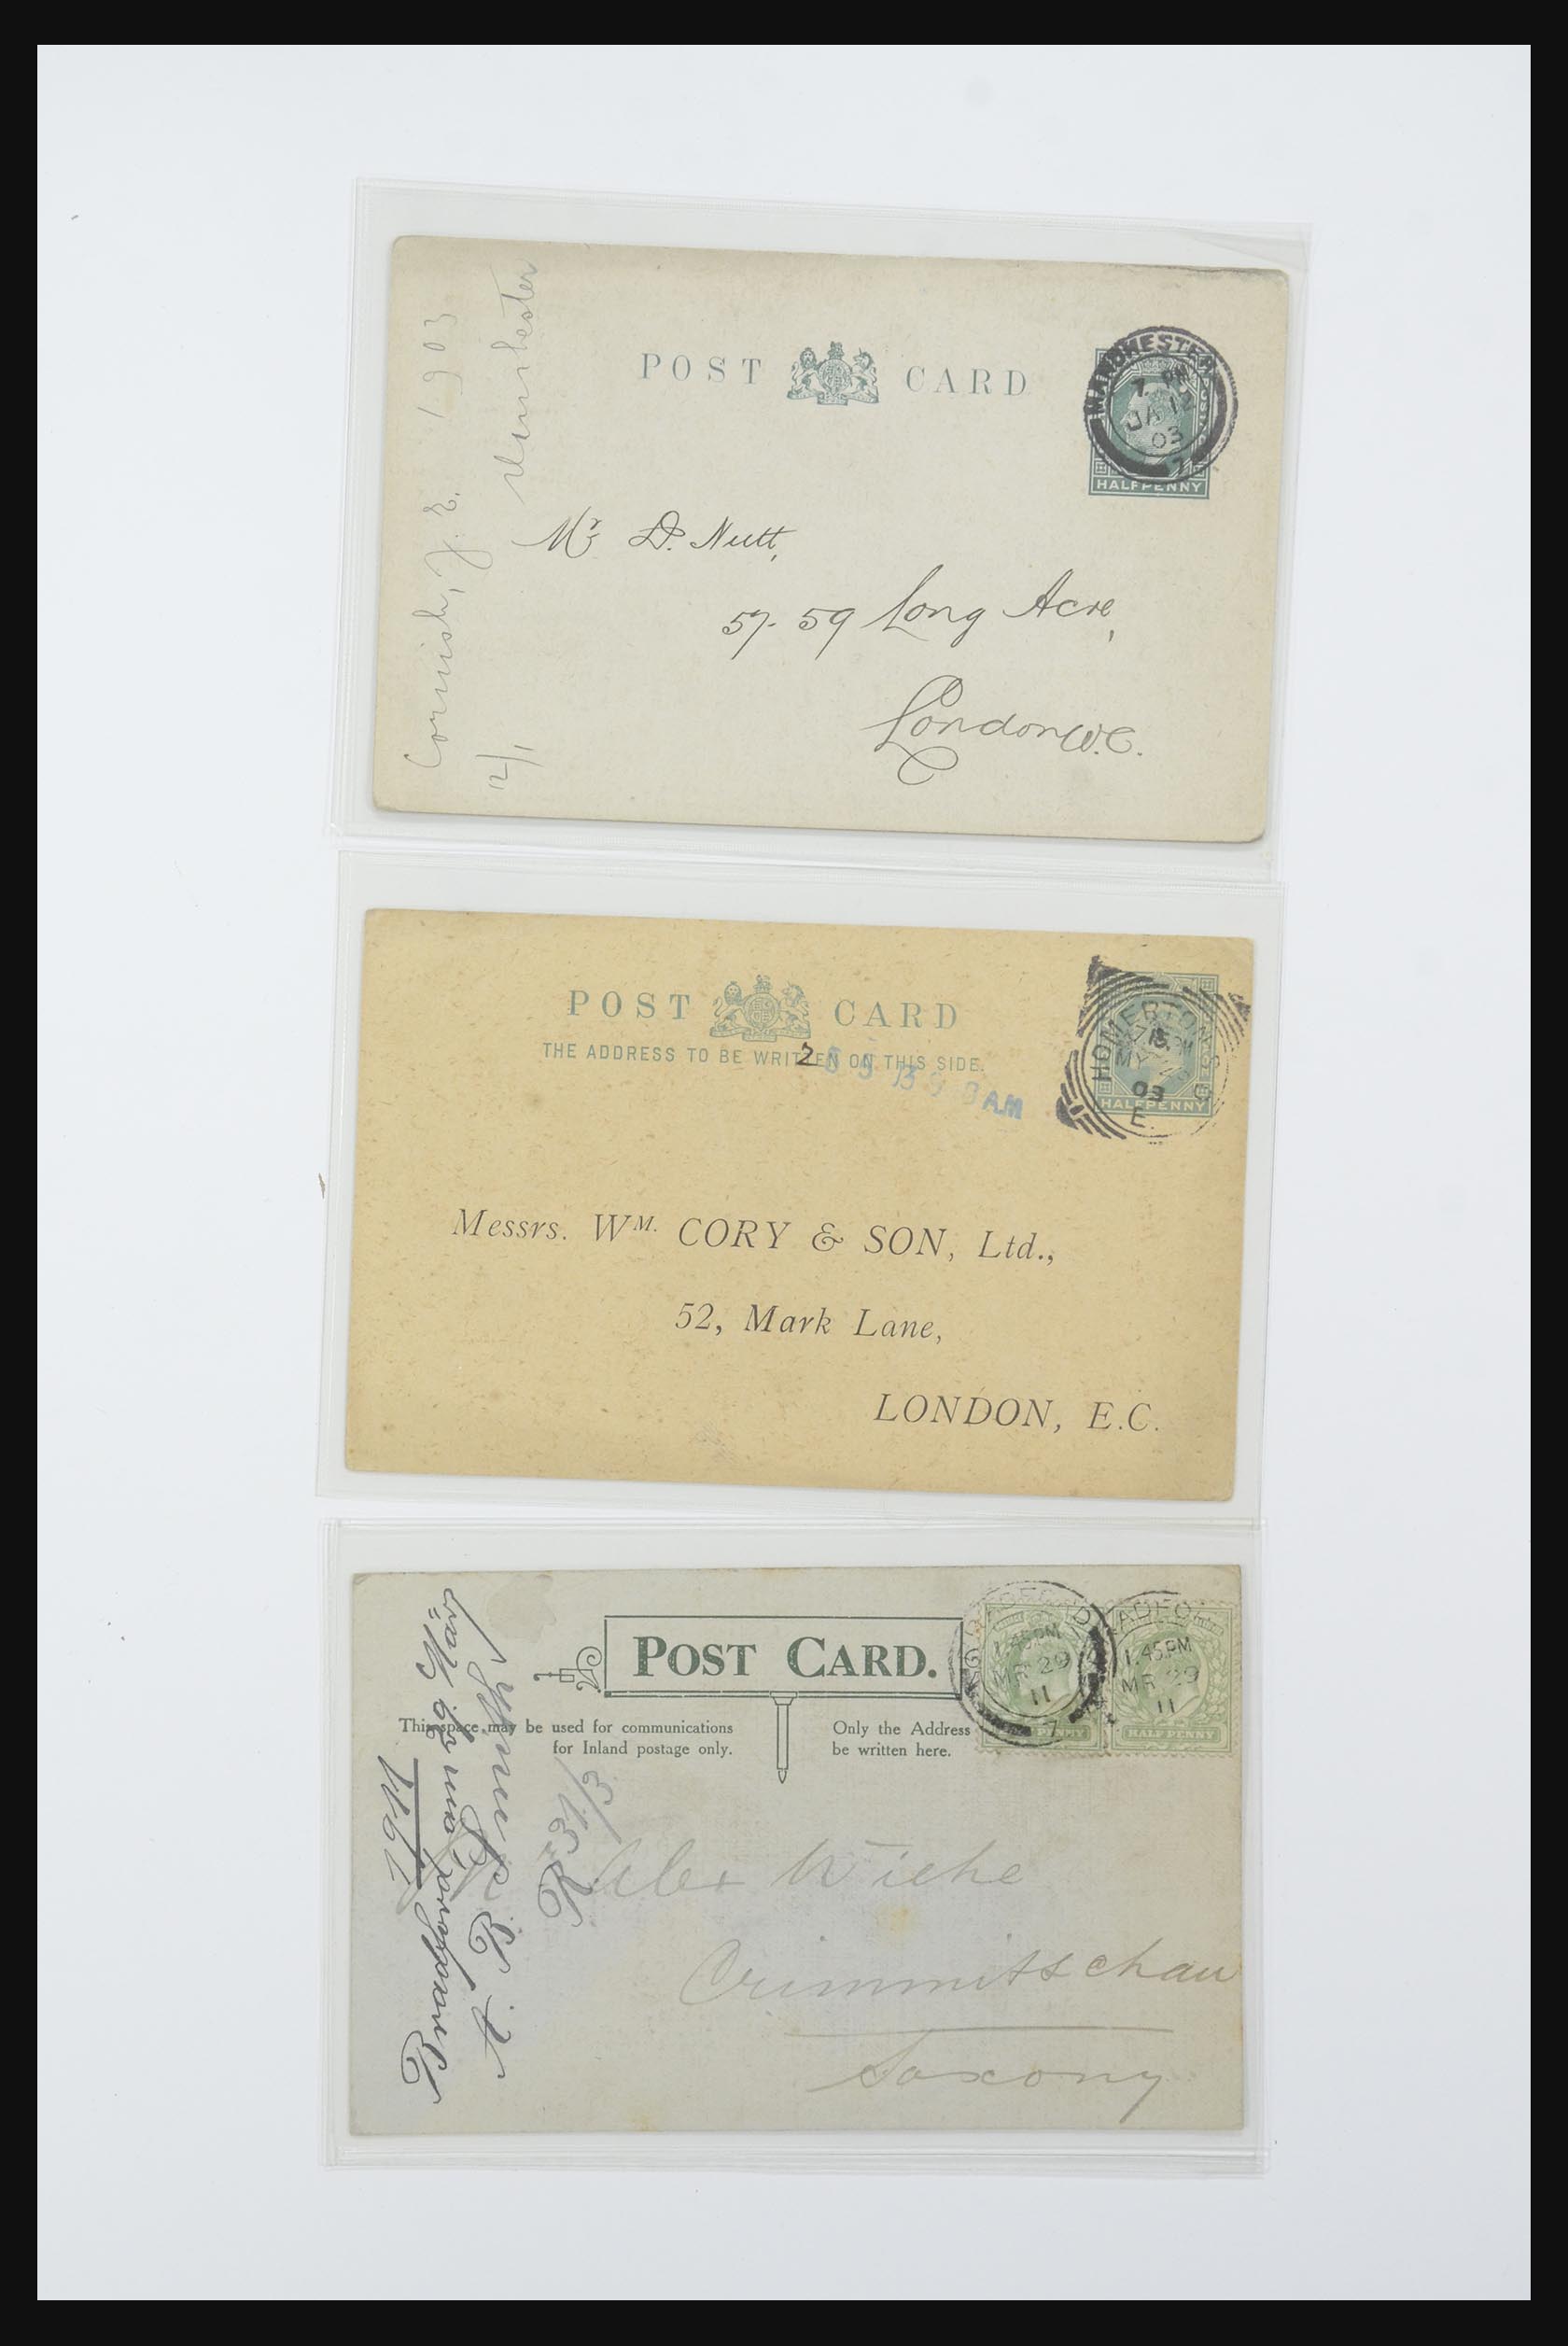 POST CARD
MANCHESTER
7 PM
JA 12
03
7
HALFPENNY
Mr D. Nutt,
57-59 Long Acre,
London W.C.
Cornish, J. E. 1903
12/1 Manchester
POST CARD
THE ADDRESS TO BE WRITTEN ON THIS SIDE.
AM
HOMERTON
MY
03
E.
HALFPENNY
Messrs. WM. CORY & SON, Ltd.,
52, Mark Lane,
LONDON, E.C.
POST CARD.
This space may be used for communications
for Inland postage only.
Only the Address
be written here.
1.45 PM
MR 29
11
7
1.45 PM
MR 29
11
HALF PENNY
HALF PENNY
R 31/3
Bradford
1911
Alex Wiehe
Crimmitschau
Saxony